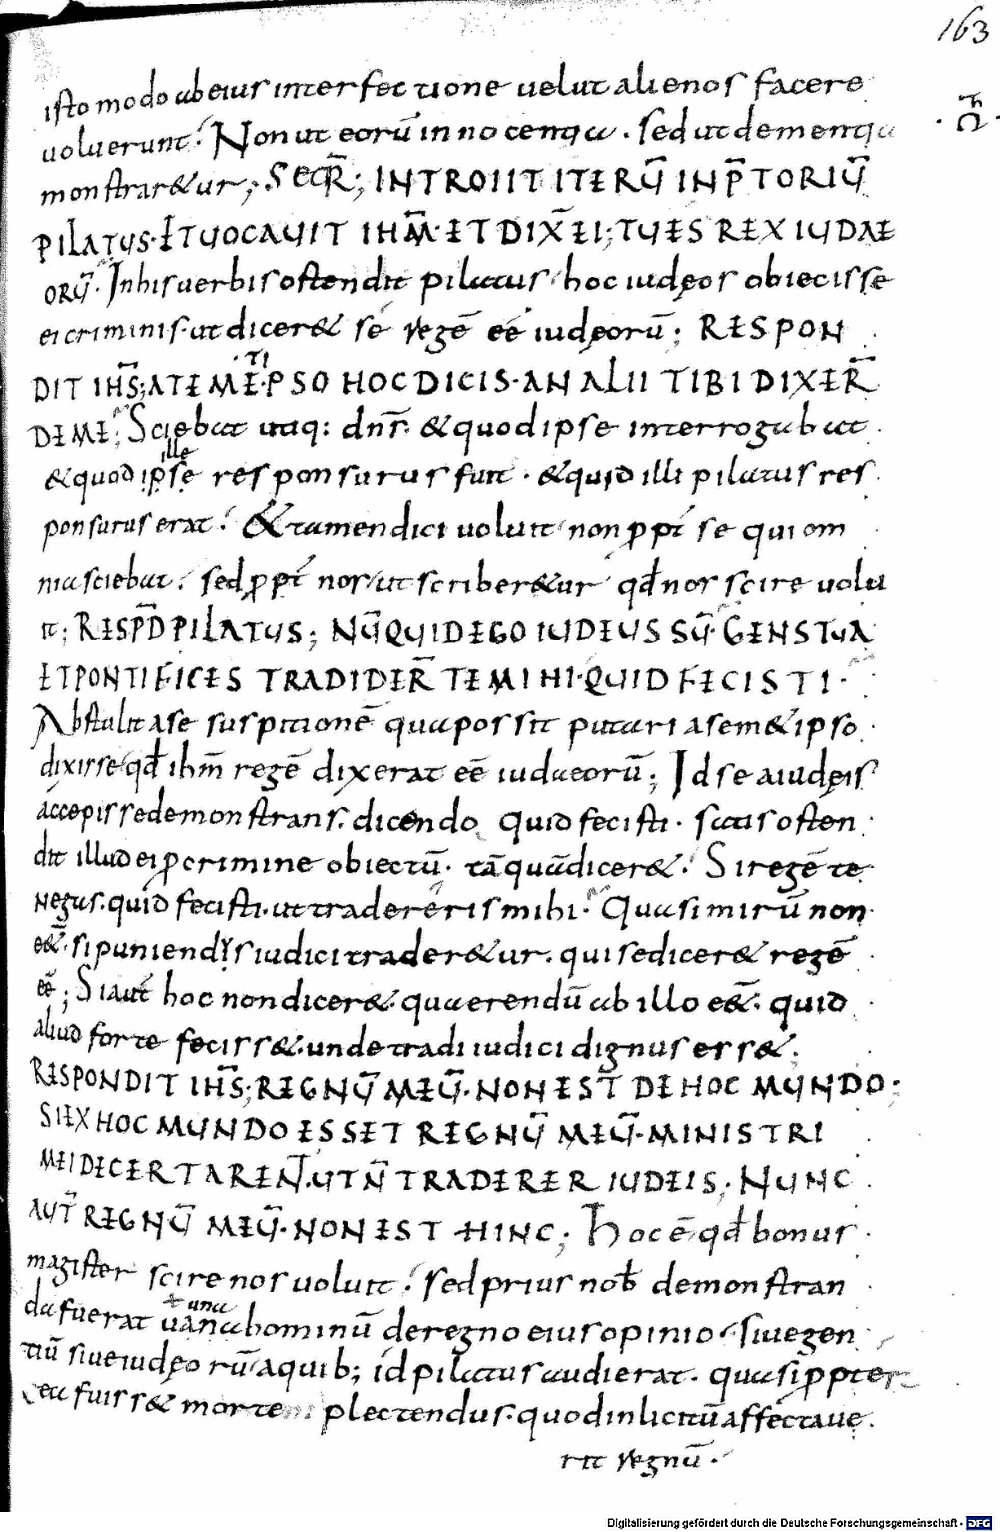 163
isto modo ab eius interfectione uelut alienos facere
uoluerunt? Non ut eorū innocentia. sed ut dementia
monstrar&ur; SEQR̄; INTROIIT ITERŪ INP̄TORIŪ
PILATUS. ET UOCAUIT IHM̄. ET DIX̄ EI; TU ES REX IUDAE
ORŪ. In his uerbis ostendit pilatus hoc iudęos obiecisse
ei criminis. ut dicer& se regē eē iudęorū; RESPON
DIT IHS̄; A TEMETIPSO HOC DICIS. AN ALII TIBI DIXER̄
DE ME; Sciebat utiq: dn̄s. & quod ipse interrogabat.
& quod ipse ille responsurus fuit. & quid illi pilatus res
ponsurus erat? & tamen dici uoluit non ꝓpt̄ se qui om
nia sciebat. sed ꝓpt̄ nos ut scriber&ur qd̄ nos scire uolu
it; RESP̄D PILATUS; NŪQUID EGO IUDEUS SŪ. GENS TUA
ET PONTIFICES TRADIDER̄ TE MIHI. QUID FECISTI.
Abstulit a se suspitionē qua possit putari a sem&ipso
dixisse qd̄ ihm̄ regē dixerat eē iudaeorū; Id se a iudęis
accepisse demonstrans. dicendo quid fecisti. satis osten
dit illud ei ꝓ crimine obiectū. tāquā dicer&. Si regē te
negas. quid fecisti. ut tradereris mihi. Quasi mirū non
e&̄. si puniendus iudici trader&ur. qui se dicer& regē
eē; Si aut̄ hoc non dicer& quaerendū ab illo e&̄. quid
aliud forte fecisse&. unde tradi iudici dignus ess&.
RESPONDIT IHS̄; REGNŪ MEŪ. NON EST DE HOC MUNDO:
SI EX HOC MUNDO ESSET REGNŪ MEŪ. MINISTRI
MEI DECERTARENT. UT N̄ TRADERER IUDEIS; NUNC
AUT̄ REGNŪ MEŪ. NON EST HINC; Hoc ē qd̄ bonus
magister scire nos uoluit. sed prius nob̄ demonstran
da fuerat uana hominū de regno eius opinio. siue gen
tiū siue iudęorū a quib; id pilatus audierat. quasi ꝓpter
ea fuiss& morte plectendus. quod inlicitū affectaue
rit regnū.
Digitalisierung gefördert durch die Deutsche Forschungsgemeinschaft - DFG